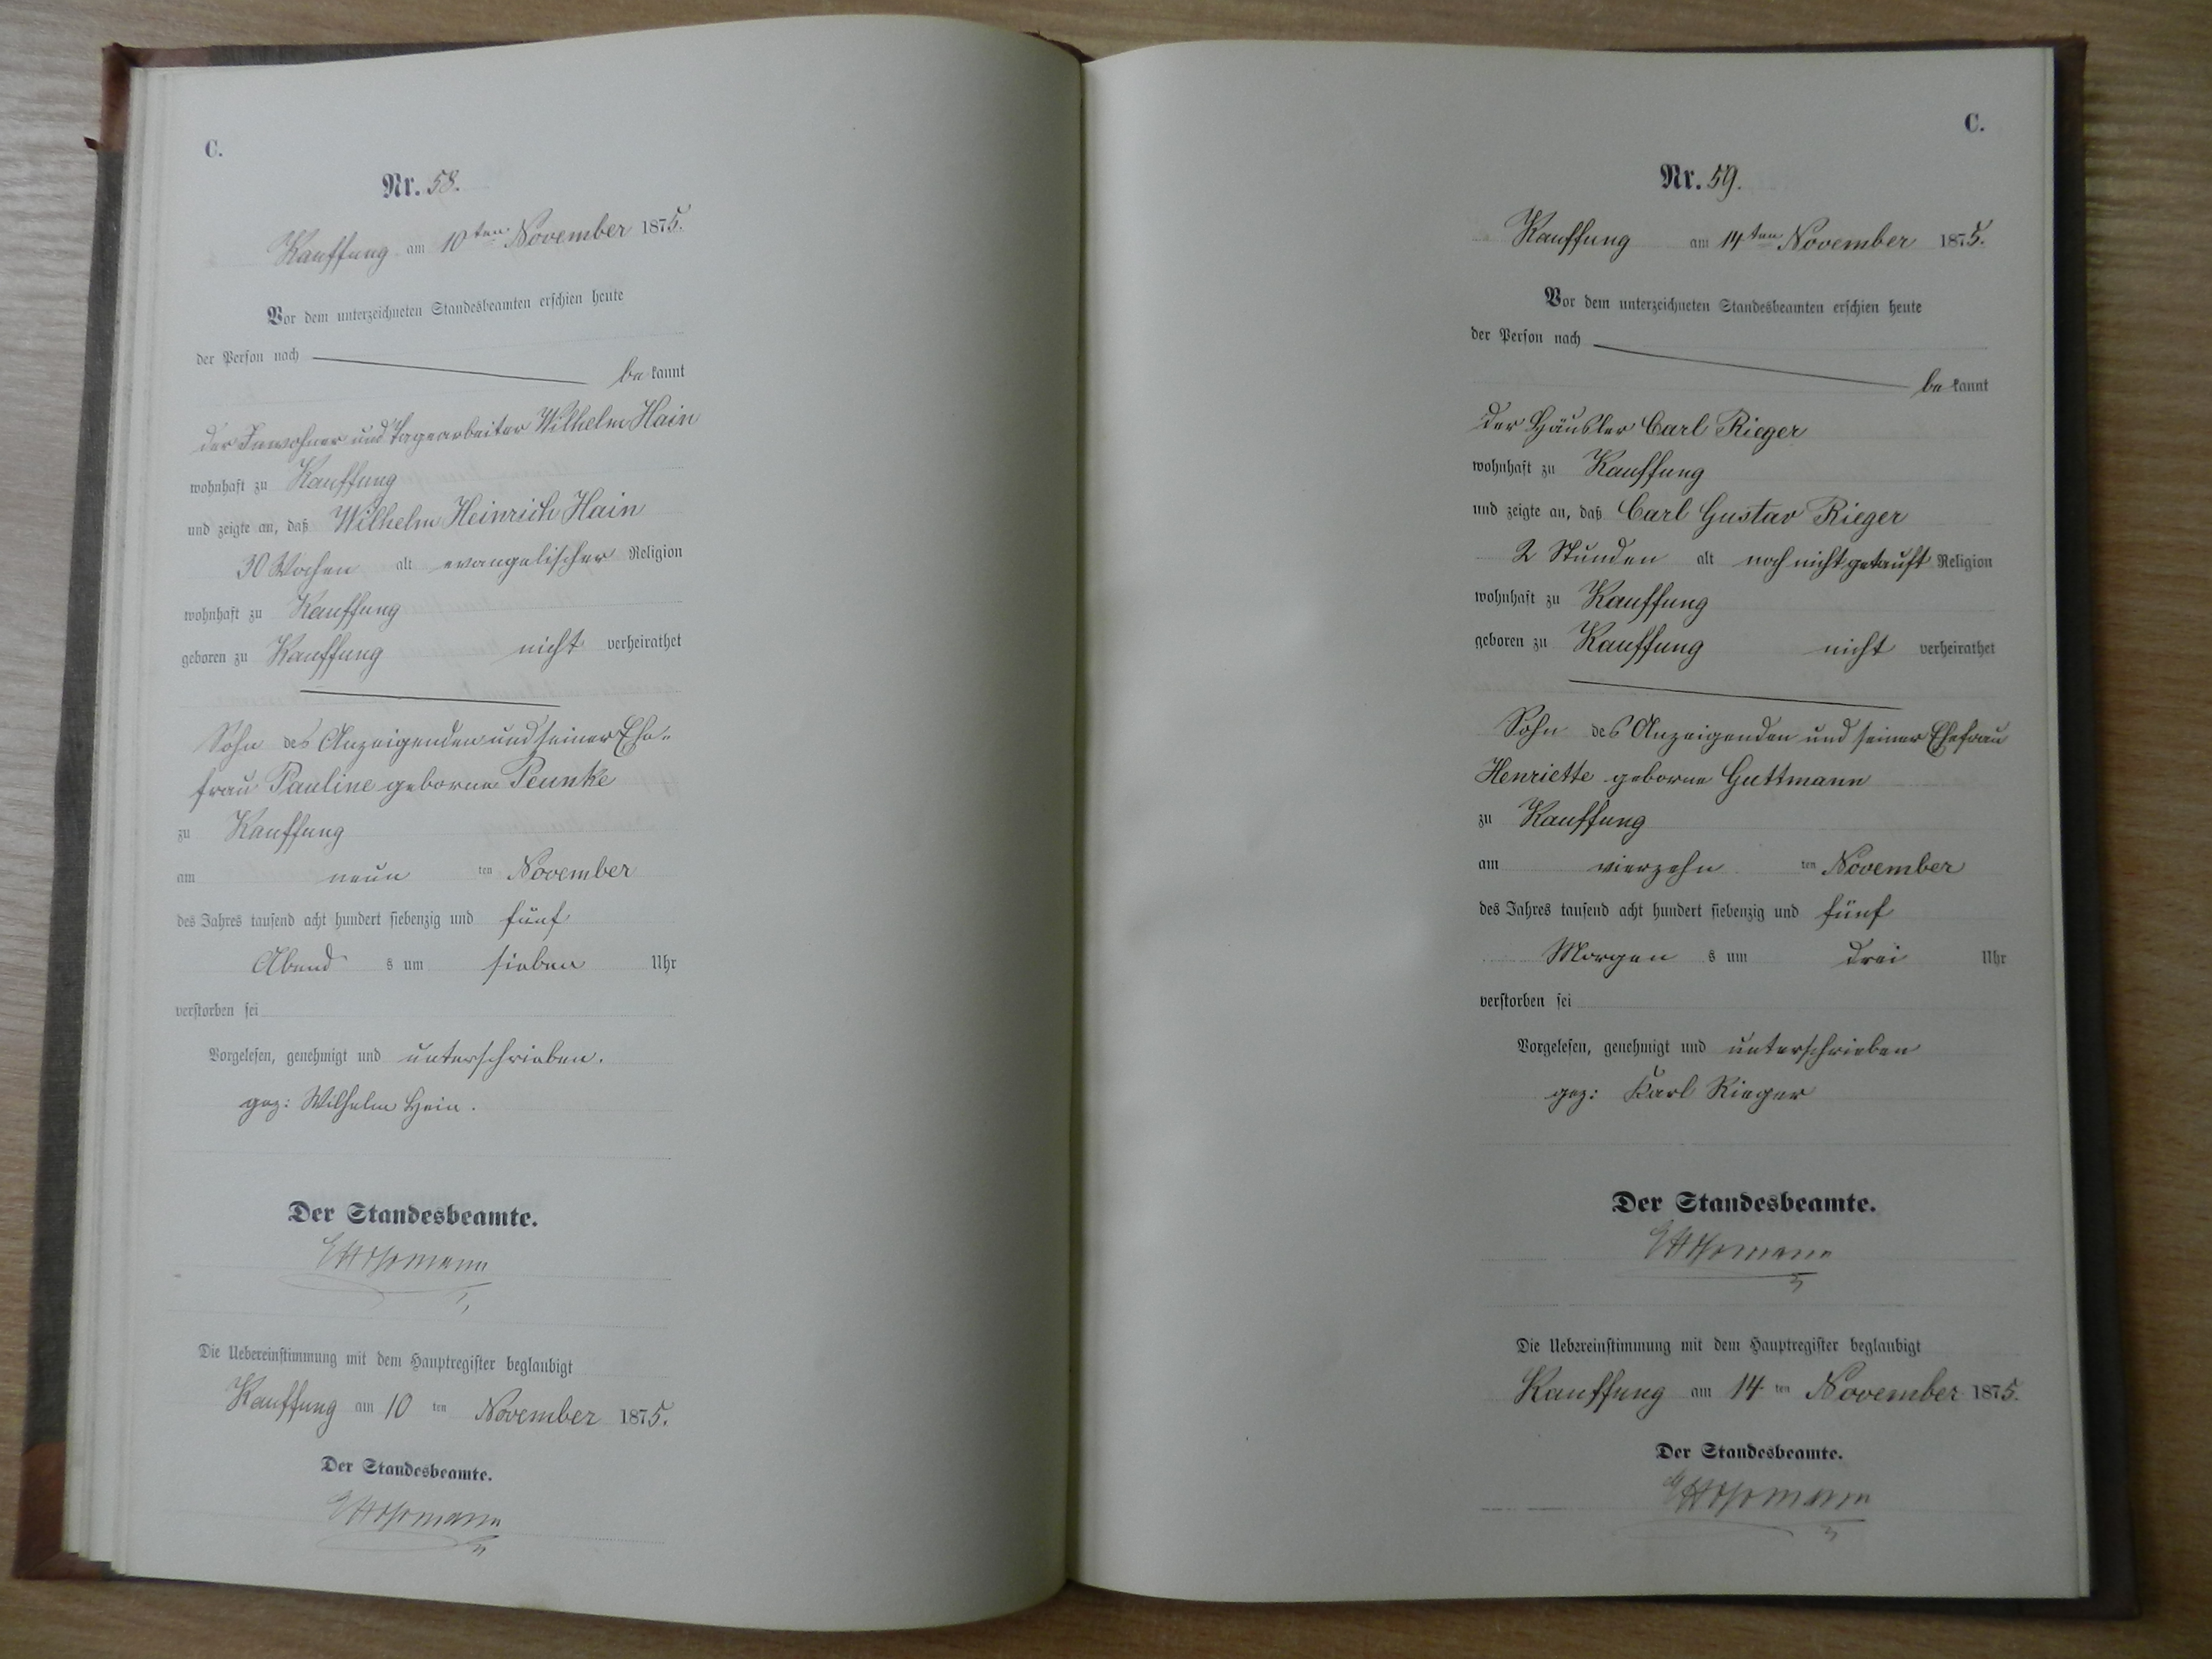 C.
Nr. 58.
Kauffung am 10ten November 1875.
Vor dem unterzeichneten Standesbeamten erschien heute
der Person nach
bekannt
der Inwohner und Tagearbeiter Wilhelm Hain
wohnhaft zu Kauffung
und zeigte an, daß Wilhelm Heinrich Hain
30 Wochen alt evangelischer Religion
wohnhaft zu Kauffung
geboren zu Kauffung nicht verheirathet
Sohn des Anzeigenden und seiner Ehe-
frau Pauline geborne Peunke
zu Kauffung
am neun ten November
des Jahres tausend acht hundert siebenzig und fünf
Abend s um sieben Uhr
verstorben sei
Vorgelesen, genehmigt und unterschrieben.
gez: Wilhelm Hein.
Der Standesbeamte.
Die Uebereinstimmung mit dem Hauptregister beglaubigt
Kauffung am 10 ten November 1875.
Der Standesbeamte.
C.
Nr. 59.
Kauffung am 14ten November 1875.
Vor dem unterzeichneten Standesbeamten erschien heute
der Person nach
bekannt
der Häusler Carl Rieger
wohnhaft zu Kauffung
und zeigte an, daß Carl Gustav Rieger
2 Stunden alt noch nicht getauft Religion
wohnhaft zu Kauffung
geboren zu Kauffung nicht verheirathet
Sohn des Anzeigenden und seiner Ehefrau
Henriette geborne Guttmann
zu Kauffung
am vierzehn ten November
des Jahres tausend acht hundert siebenzig und fünf
Morgen s um drei Uhr
verstorben sei
Vorgelesen, genehmigt und unterschrieben
gez: Karl Rieger
Der Standesbeamte.
Die Uebereinstimmung mit dem Hauptregister beglaubigt
Kauffung am 14 ten November 1875.
Der Standesbeamte.